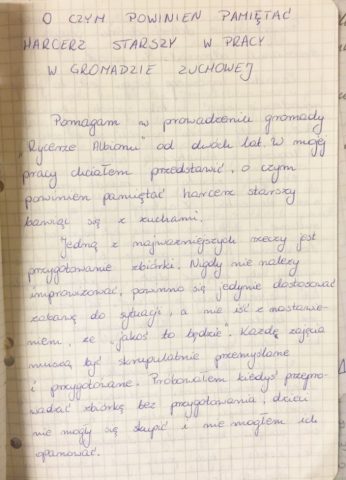 O CZYM POWINIEN PAMIĘTAĆ
HARCERZ STARSZY W PRACY
W GROMADZIE ZUCHOWEJ
Pomagam w prowadzeniu gromady
"Rycerze Albionu" od dwóch lat. W mojej
pracy chciałem przedstawić, o czym
powinien pamiętać harcerz starszy
bawiąc się z zuchami.
Jedną z najważniejszych rzeczy jest
przygotowanie zbiórki. Nigdy nie należy
improwizować, powinno się jedynie dostosować
zabawę do sytuacji, a nie iść z nastawie-
niem, że "jakoś to będzie". Każde zajęcia
muszą być skrupulatnie przemyślane
i przygotowane. Próbowałem kiedyś przepro-
wadzać zbiórkę bez przygotowania, dzieci
nie mogły się skupić i nie mogłem ich
opanować.